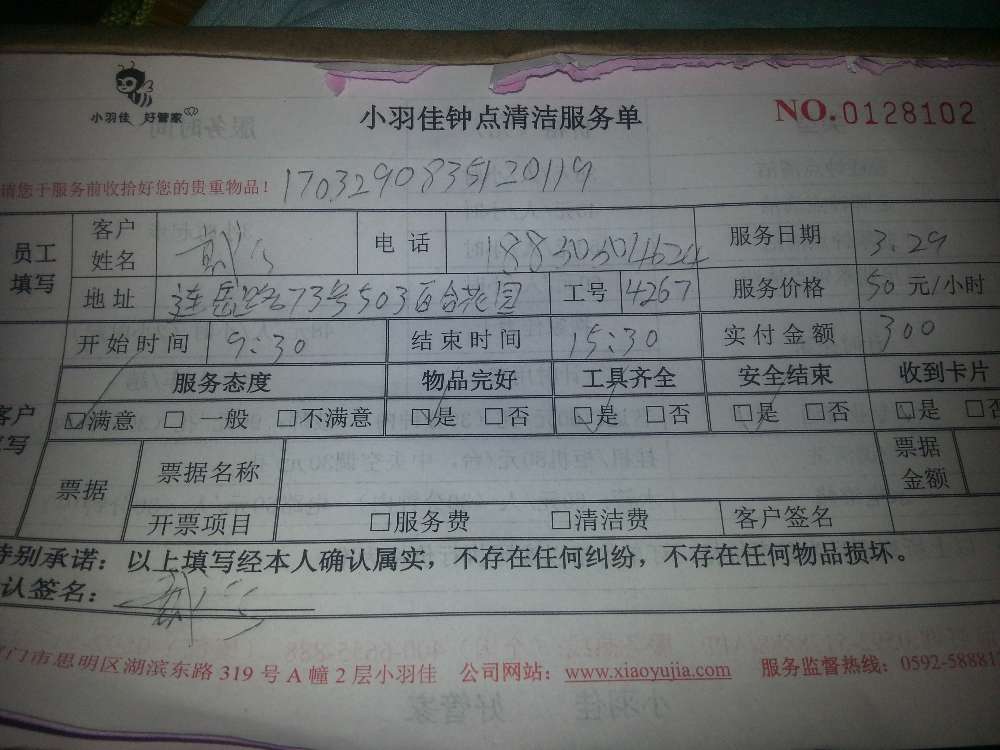 小羽佳 好管家
小羽佳钟点清洁服务单
NO.0128102
请您于服务前收拾好您的贵重物品！ 1703290835120119
员工填写 客户姓名 电话 服务日期 3.29
地址 连岳路73号503百合花园 工号 4267 服务价格 50 元/小时
开始时间 9:30 结束时间 15:30 实付金额 300
服务态度 物品完好 工具齐全 安全结束 收到卡片
☑满意 □一般 □不满意 ☑是 □否 ☑是 □否 ☑是 □否 ☑是 □否
票据 票据名称 票据金额
开票项目 □服务费 □清洁费 客户签名
特别承诺：以上填写经本人确认属实，不存在任何纠纷，不存在任何物品损坏。
认签名：
门市思明区湖滨东路 319 号 A 幢 2 层小羽佳 公司网站：www.xiaoyujia.com 服务监督热线：0592-58881